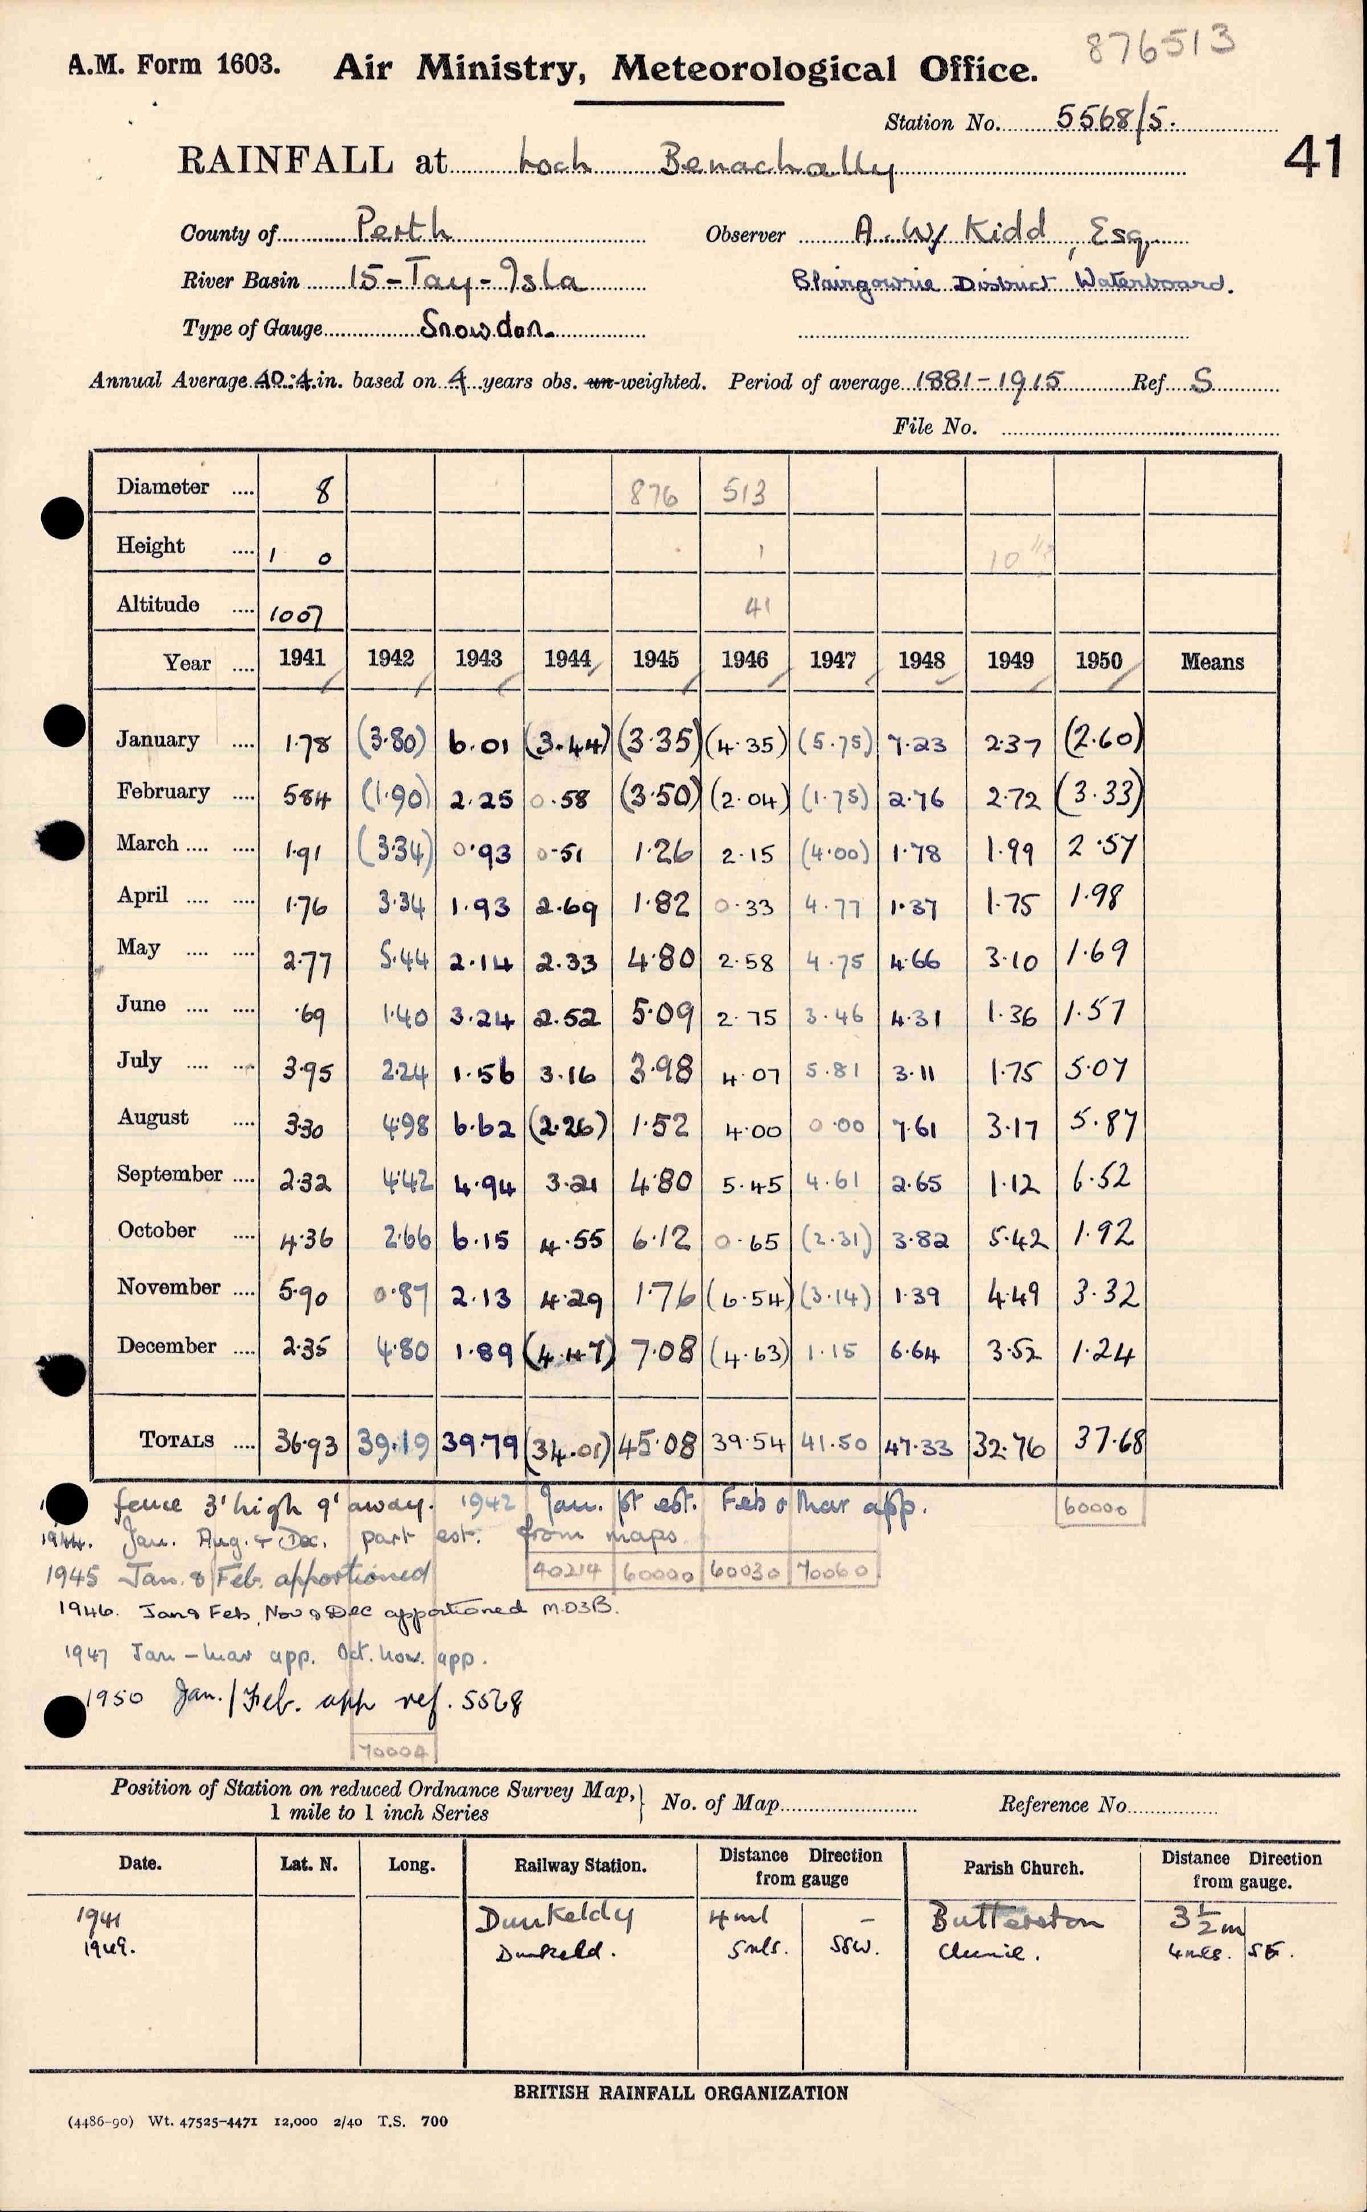 876513
A.M. Form 1603. Air Ministry, Meteorological Office.
Station No. 5568/5.
41
RAINFALL at Loch Benachally
County of Perth Observer A. W. Kidd, Esq
River Basin 15-Tay-Isla Blairgowrie District Waterboard.
Type of Gauge Snowdon.
Annual Average 40.4 in. based on 4 years obs. un-weighted. Period of average 1881-1915 Ref S
File No.
Diameter 8 876 513
Height 1 0 1 10
Altitude 1007 41
Year 1941 1942 1943 1944 1945 1946 1947 1948 1949 1950 Means
January 1.78 (3.80) 6.01 (3.44) (3.35) (4.35) (5.75) 7.23 2.37 (2.60)
February 5.84 (1.90) 2.25 0.58 (3.50) (2.04) (1.75) 2.76 2.72 (3.33)
March 1.91 (3.34) 0.93 0.51 1.26 2.15 (4.00) 1.78 1.99 2.57
April 1.76 3.34 1.93 2.69 1.82 0.33 4.77 1.37 1.75 1.98
May 2.77 5.44 2.14 2.33 4.80 2.58 4.75 4.66 3.10 1.69
June .69 1.40 3.24 2.52 5.09 2.75 3.46 4.31 1.36 1.57
July 3.95 2.24 1.56 3.16 3.98 4.07 5.81 3.11 1.75 5.07
August 3.30 4.98 6.62 (2.26) 1.52 4.00 0.00 7.61 3.17 5.87
September 2.32 4.42 4.94 3.21 4.80 5.45 4.61 2.65 1.12 6.52
October 4.36 2.66 6.15 4.55 6.12 0.65 (2.31) 3.82 5.42 1.92
November 5.90 0.87 2.13 4.29 1.76 (6.54) (3.14) 1.39 4.49 3.32
December 2.35 4.80 1.89 (4.47) 7.08 (4.63) 1.15 6.64 3.52 1.24
TOTALS 36.93 39.19 39.79 (34.01) 45.08 39.54 41.50 47.33 32.76 37.68
fence 3' high 9' away. 1942 Jan. pt est. Feb & Mar app. 60000
1944. Jan. Aug. & Dec. part est. from maps
1945 Jan. & Feb. apportioned 40214 60000 60030 70060
1946. Jan & Feb, Nov & Dec apportioned M.O3B.
1947 Jan-Mar app. Oct. Nov. app.
1950 Jan./Feb. app ref. 5568
70004
Position of Station on reduced Ordnance Survey Map, 1 mile to 1 inch Series } No. of Map Reference No.
Date. Lat. N. Long. Railway Station. Distance Direction from gauge Parish Church. Distance Direction from gauge.
1941 Dunkeldy 4ml - Butterston 3½m
1949. Dunkeld. 5mls. SSW. Clunie. 4mls. SE.
BRITISH RAINFALL ORGANIZATION
(4486-90) Wt. 47525-4471 12,000 2/40 T.S. 700